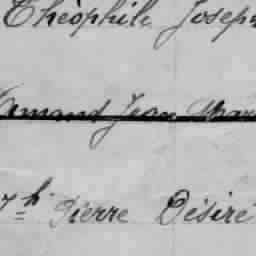 Théophile Joseph
Armand Jean Marie
7h Pierre Désiré